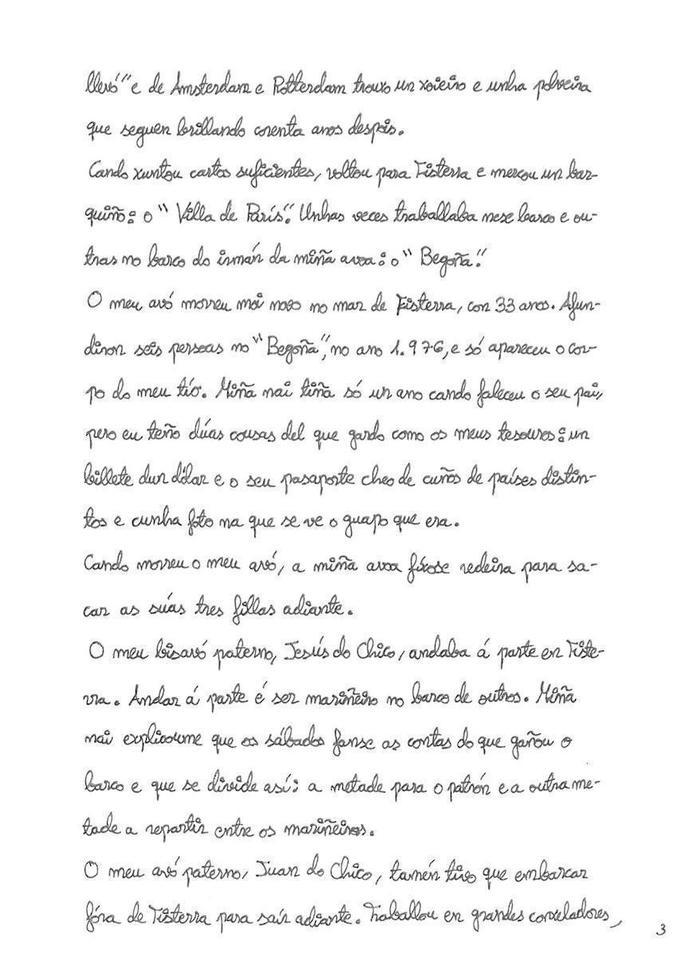 llevó" e de Amsterdam e Rotterdam trouxo un xoieiro e unha polveira
que seguen brillando corenta anos despois.
Cando xuntou cartos suficientes, voltou para Fisterra e mercou un bar-
quiño: o "Villa de París". Unhas veces traballaba nese barco e ou-
tras no barco do irmán da miña avoa: o "Begoña".
O meu avó morreu moi novo no mar de Fisterra, con 33 anos. Afun-
diron seis persoas no "Begoña", no ano 1.976, e só apareceu o cor-
po do meu tío. Miña nai tiña só un ano cando faleceu o seu pai,
pero eu teño dúas cousas del que gardo como os meus tesouros: un
billete dun dólar e o seu pasaporte cheo de cuños de países distin-
tos e cunha foto na que se ve o guapo que era.
Cando morreu o meu avó, a miña avoa fíxose redeira para sa-
car as súas tres fillas adiante.
O meu bisavó paterno, Jesús do Chico, andaba á parte en Fiste-
rra. Andar á parte é ser mariñeiro no barco de outros. Miña
nai explicoume que os sábados fanse as contas do que gañou o
barco e que se divide así: a metade para o patrón e a outra me-
tade a repartir entre os mariñeiros.
O meu avó paterno, Juan do Chico, tamén tivo que embarcar
fóra de Fisterra para saír adiante. Traballou en grandes conxeladores,
3